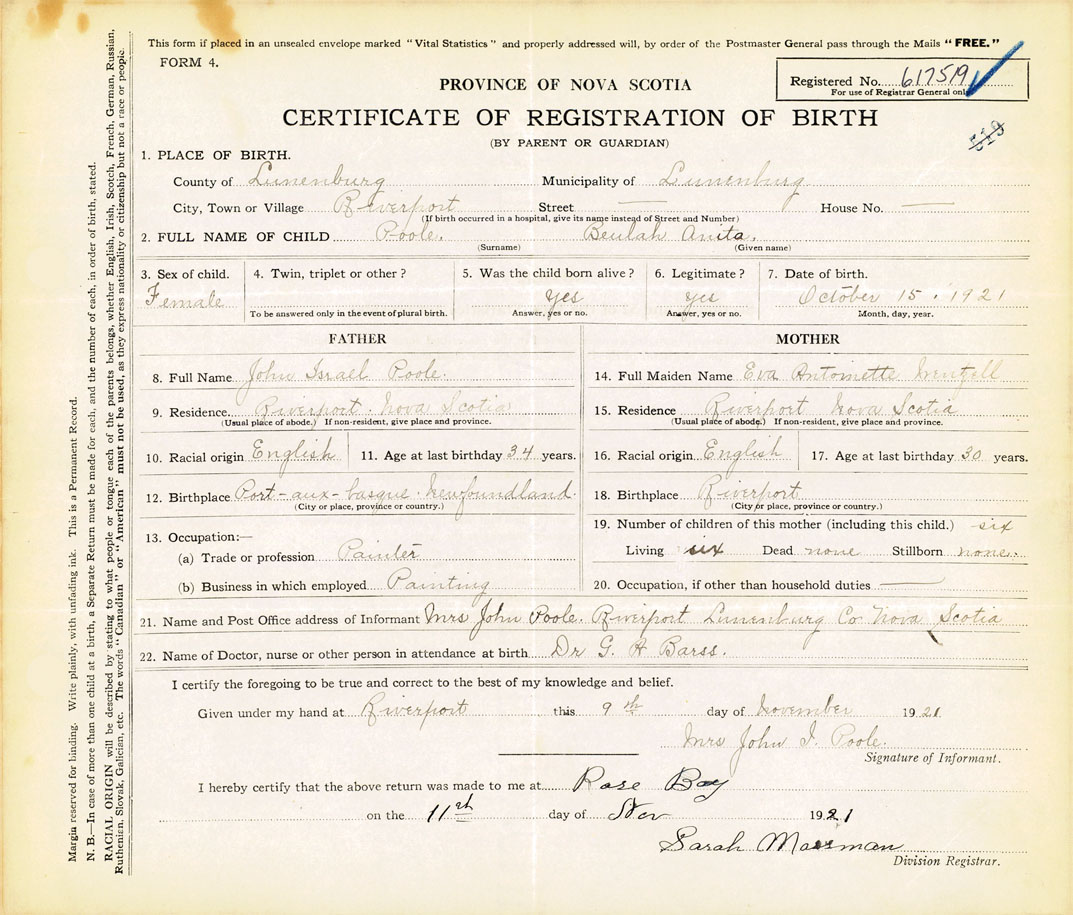 This form if placed in an unsealed envelope marked "Vital Statistics" and properly addressed will, by order of the Postmaster General pass through the Mails "FREE."
FORM 4.
Registered No. 617519
For use of Registrar General only
PROVINCE OF NOVA SCOTIA
CERTIFICATE OF REGISTRATION OF BIRTH
519
(BY PARENT OR GUARDIAN)
1. PLACE OF BIRTH.
County of Lunenburg Municipality of Lunenburg
City, Town or Village Riverport Street — House No. —
(If birth occurred in a hospital, give its name instead of Street and Number)
2. FULL NAME OF CHILD Poole. Beulah Anita.
(Surname) (Given name)
3. Sex of child. 4. Twin, triplet or other? 5. Was the child born alive? 6. Legitimate? 7. Date of birth.
Female yes yes October 15. 1921
To be answered only in the event of plural birth. Answer, yes or no. Answer, yes or no. Month, day, year.
FATHER
8. Full Name John Israel Poole.
9. Residence Riverport. Nova Scotia
(Usual place of abode.) If non-resident, give place and province.
10. Racial origin English 11. Age at last birthday 34 years.
12. Birthplace Port-aux-basque. Newfoundland.
(City or place, province or country.)
13. Occupation:—
(a) Trade or profession Painter
(b) Business in which employed Painting
MOTHER
14. Full Maiden Name Eva Antoinette Wentzell
15. Residence Riverport Nova Scotia
(Usual place of abode.) If non-resident, give place and province.
16. Racial origin English 17. Age at last birthday 30 years.
18. Birthplace Riverport
(City or place, province or country.)
19. Number of children of this mother (including this child.) six
Living six Dead none Stillborn none.
20. Occupation, if other than household duties —
21. Name and Post Office address of Informant Mrs John Poole. Riverport Lunenburg Co Nova Scotia
22. Name of Doctor, nurse or other person in attendance at birth Dr G. A Barss.
I certify the foregoing to be true and correct to the best of my knowledge and belief.
Given under my hand at Riverport this 9th day of November 1921
Mrs John I. Poole.
Signature of Informant.
I hereby certify that the above return was made to me at Rose Bay
on the 11th day of Nov 1921
Sarah Mossman
Division Registrar.
Margin reserved for binding. Write plainly, with unfading ink. This is a Permanent Record.
N. B.—In case of more than one child at a birth, a Separate Return must be made for each, and the number of each, in order of birth, stated.
RACIAL ORIGIN will be described by stating to what people or tongue each of the parents belongs, whether English, Irish, Scotch, French, German, Russian,
Ruthenian, Slovak, Galician, etc. The words "Canadian" or "American" must not be used, as they express nationality or citizenship but not a race or people.